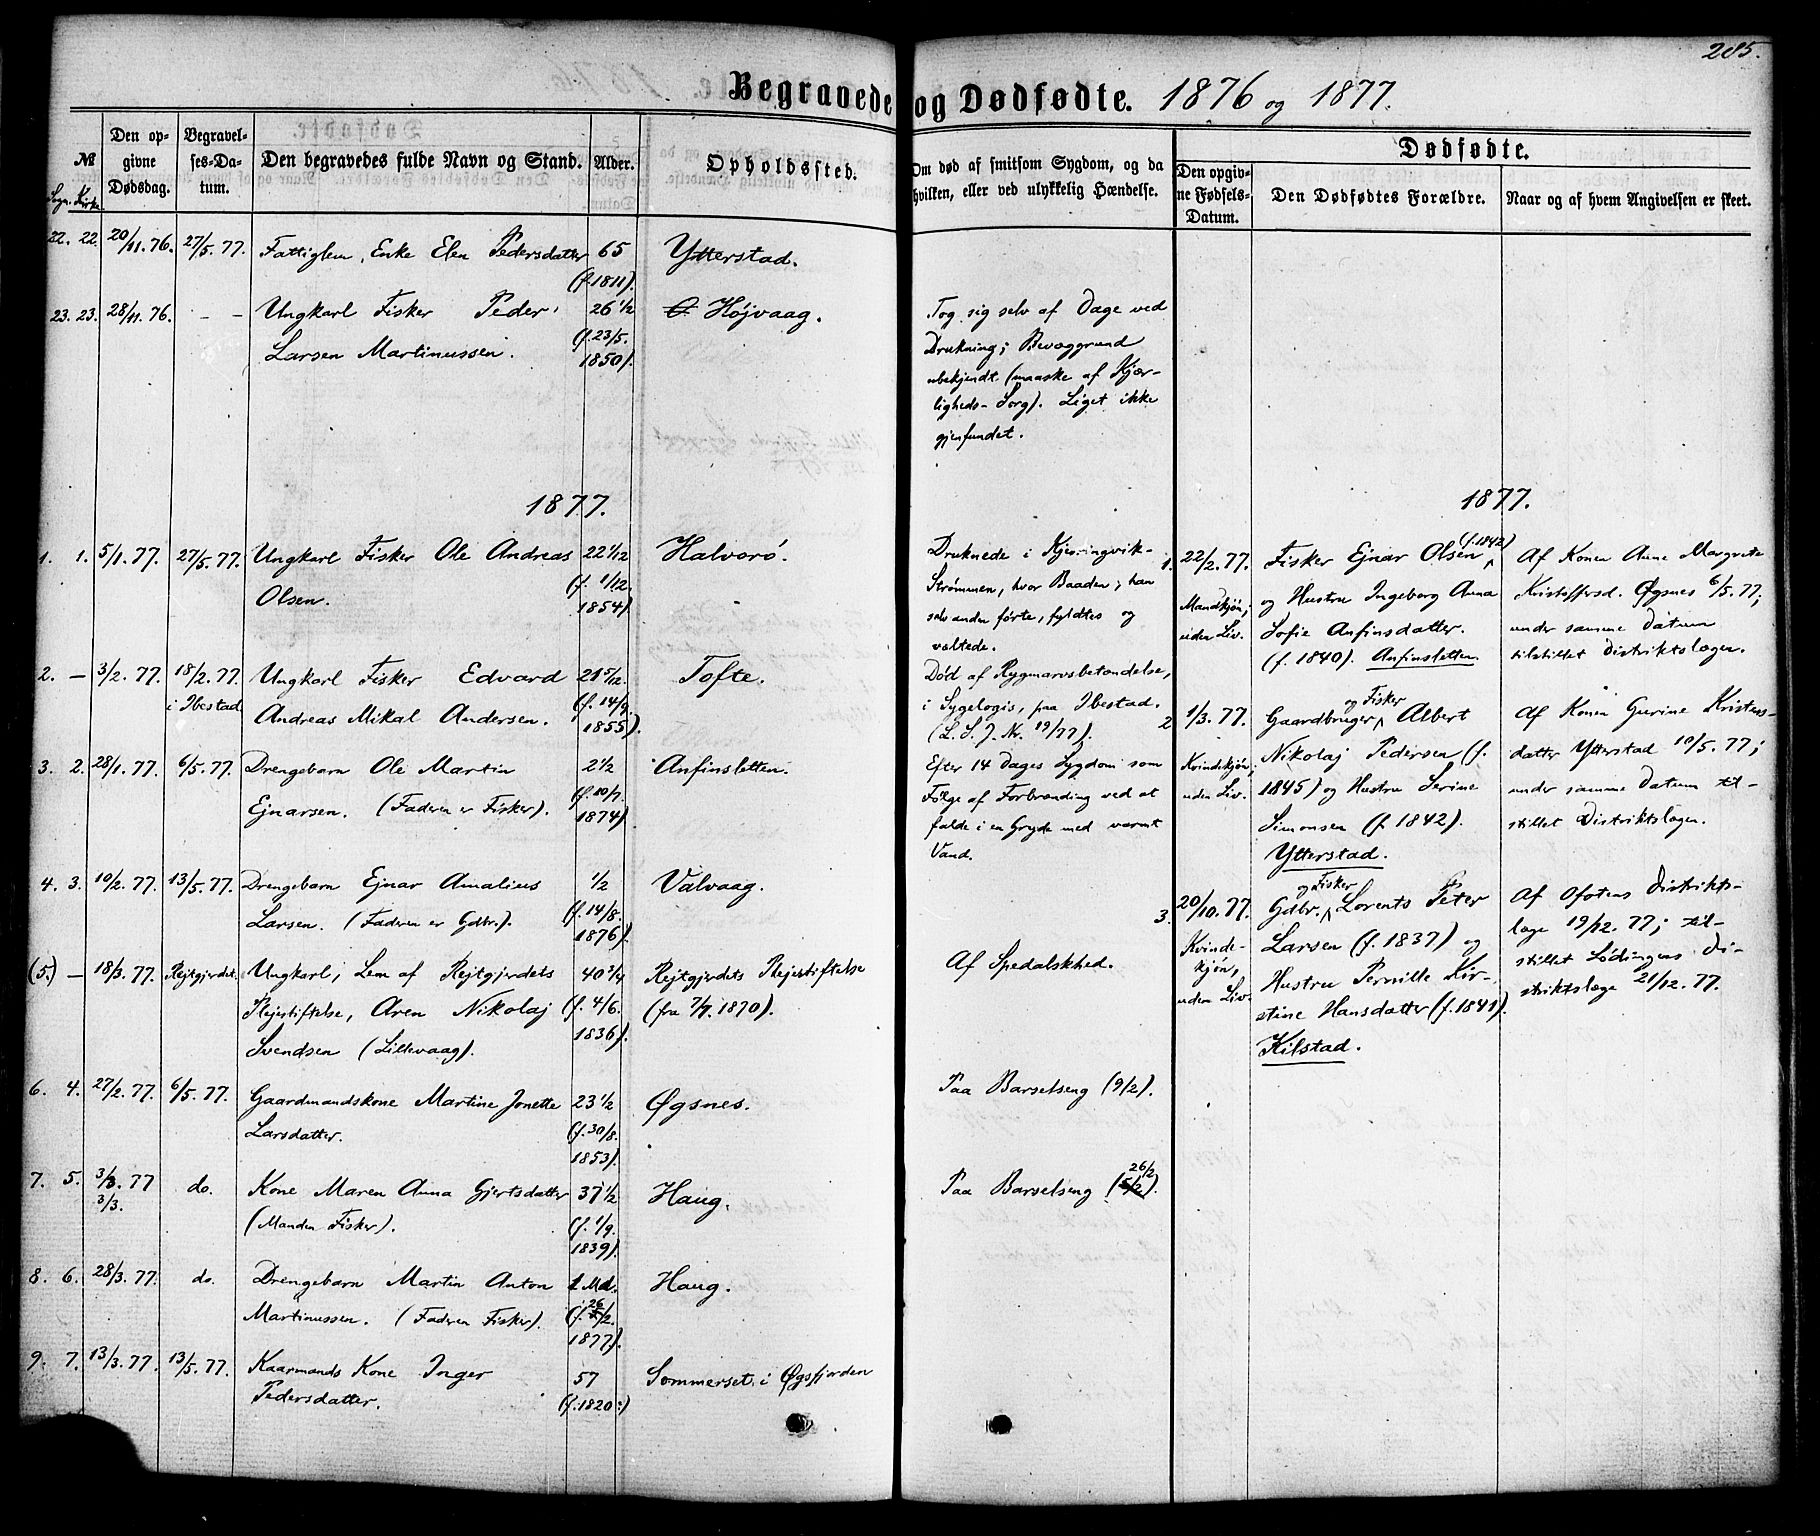 285.
Begravede og Dødfødte. 1876 og 1877.
№
Sogn. Kirke.
Den op-
givne
Dødsdag.
Begravel-
ses-Da-
tum.
Den begravedes fulde Navn og Stand.
Alder.
Opholdssted.
Om død af smitsom Sygdom, og da
hvilken, eller ved ulykkelig Hændelse.
Dødfødte.
Den opgiv-
ne Fødsels-
Datum.
Den Dødfødtes Forældre.
Naar og af hvem Angivelsen er skeet.
22. 22. 20/11. 76. 27/5. 77. Fattiglem, Enke Elen Pedersdatter 65 Ytterstad.
(f. 1811).
23. 23. 28/11. 76. - - Ungkarl Fisker Peder 26 1/2 Højvaag.
Larsen Martinussen. (f. 23/5.
1850).
Tog sig selv af Dage ved
Drukning; Bevæggrund
ubekjendt (maaske af Kjær-
ligheds-Sorg). Liget ikke
gjenfundet.
1877.
1. 1. 5/1. 77. 27/5. 77. Ungkarl Fisker Ole Andreas 22 1/12 Halvorö.
Olsen. (f. 1/12.
1854).
Druknede i Kjeringvik-
Strömmen, hvor Baaden, han
selvanden førte, fyldtes og
væltede.
2. - 3/2. 77. 18/2. 77. Ungkarl Fisker Edvard 21 5/12. Tofte.
i Ibestad Andreas Mikal Andersen. (f. 14/9.
1855).
Død af Rygmarvsbetændelse,
i Sygelogis, paa Ibestad.
(L. S. J. Nr. 19/77).
3. 2. 28/1. 77. 6/5. 77. Drengebarn Ole Martin 2 1/2 Anfinsletten.
Ejnarsen. (Faderen er Fisker). (f. 20/7.
1874).
Efter 14 Dages Sygdom som
Følge af Forbrænding ved at
falde i en Gryde med varmt
Vand.
4. 3. 10/2. 77. 13/5. 77. Drengebarn Ejnar Amalius 1/2 Valvaag.
Larsen. (Faderen er Gdbr.). (f. 14/8.
1876).
(5.) - 18/3. 77. Rejtgjerdet. Ungkarl, Lem af Rejtgjerdets 40 3/4 Rejtgjerdets Plejestiftelse
Plejestiftelse, Aren Nikolaj (f. 4/6. (fra 7/7. 1870).
Svendsen (Lillevaag). 1836).
Af Spedalskhed.
6. 4. 27/2. 77. 6/5. 77. Gaardmandskone Martine Jonette 23 1/2 Øgsnes.
Larsdatter. (f. 30/8.
1853).
Paa Barselseng (9/2).
7. 5. 3/3. 77 do. Kone Maren Anna Gjertsdatter 37 1/2 Haug.
3/3. (Manden Fisker). (f. 1/9.
1839).
26/2
Paa Barselseng (5/2).
8. 6. 28/3. 77. do. Drengebarn Martin Anton 1 Md. Haug.
Martinussen. (Faderen Fisker). (f. 26/2.
1877).
9. 7. 13/3. 77. 13/5. 77. Kaarmands Kone Inger 57 Sommerset i Øgsfjorden
Pedersdatter. (f. 1820:)
1877.
1. 22/2. 77.
Mandkjön;
uden Liv.
Fisker Ejnar Olsen (f. 1842)
og Hustru Ingeborg Anna
Sofie Anfinsdatter.
(f. 1840). Anfinsletten.
Af Konen Anne Margrete
Kristoffersd. Øgsnes 6/5. 77;
under samme Datum
tilstillet Distriktslægen.
2 1/3. 77.
Kvindekjön,
uden Liv.
og Fisker
Gaardbruger Albert
Nikolaj Pedersen (f.
1845) og Hustru Serine
Simonsen (f. 1842).
Ytterstad.
Af Konen Gurine Kristens-
datter Ytterstad 10/5. 77;
under samme Datum til-
stillet Distriktslægen.
3. 20/10. 77.
Kvinde-
kjön,
uden Liv.
og Fisker
Gdbr. Lorents Peter
Larsen (f. 1837) og
Hustru Pernille Kir-
stine Hansdatter (f. 1841).
Kilstad.
Af Ofotens Distrikts-
læge 19/12. 77; til-
stillet Lödingens Di-
striktslæge 21/12. 77.